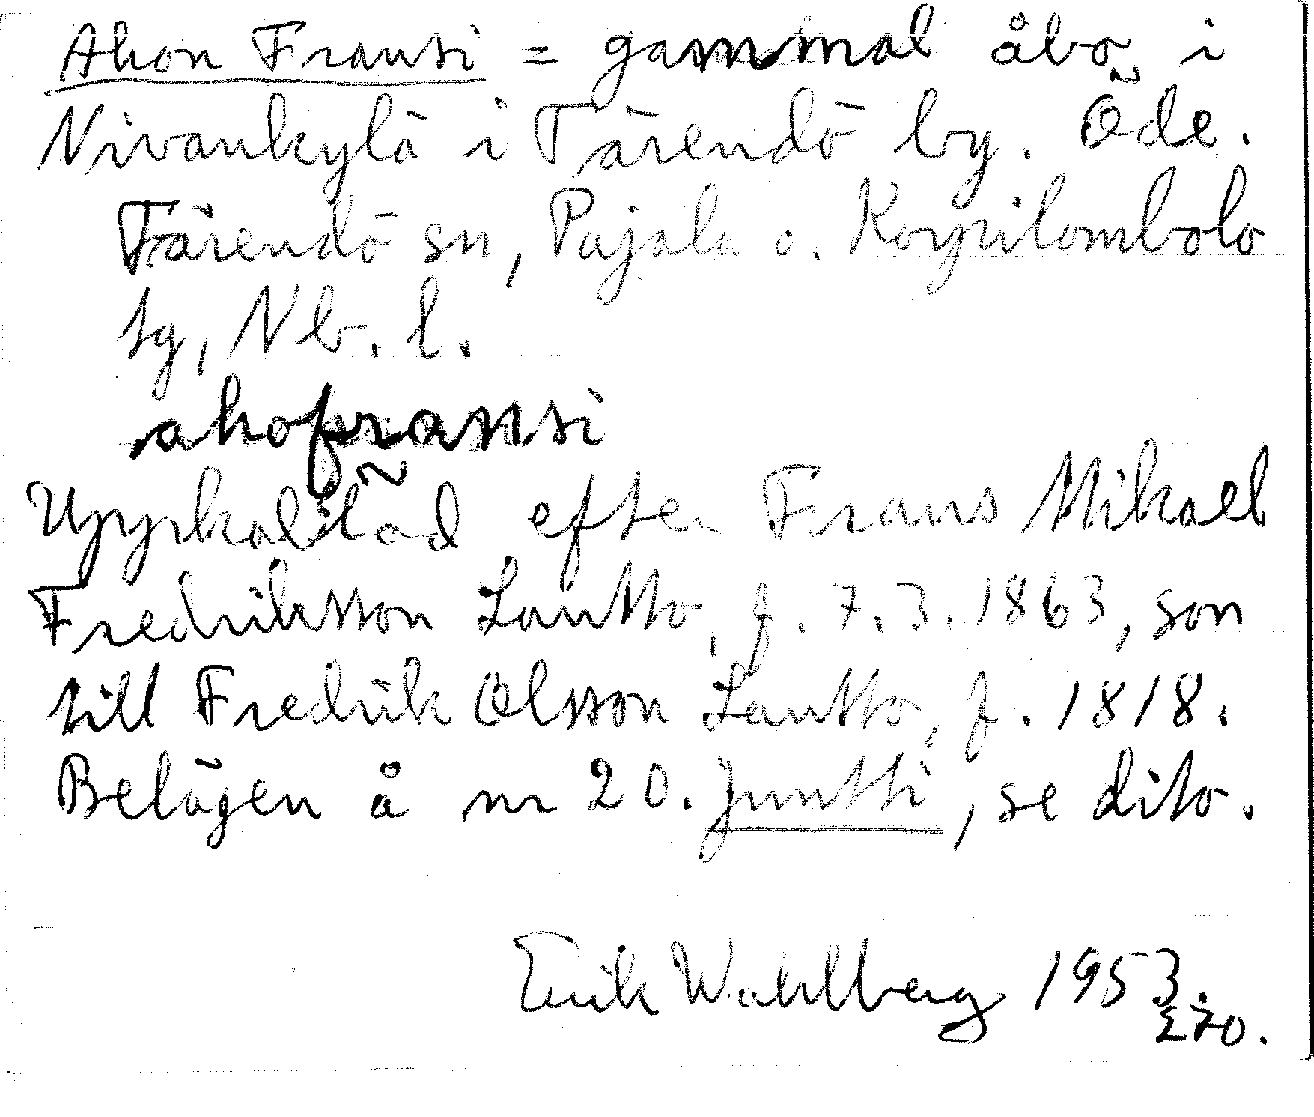 Ahon Fransi = gammal åbo i
Nivankylä i Tärendö by. Öde.
Tärendö sn, Pajala o. Korpilombolo
tg, Nb. l.
ahofransi
Uppkallad efter Frans Mikael
Fredriksson Lautto, f. 7.3.1863, son
till Fredrik Olsson Lautto, f. 1818.
Belägen å nr 20. Juntti, se dito.
Erik Wahlberg 1953.
270.